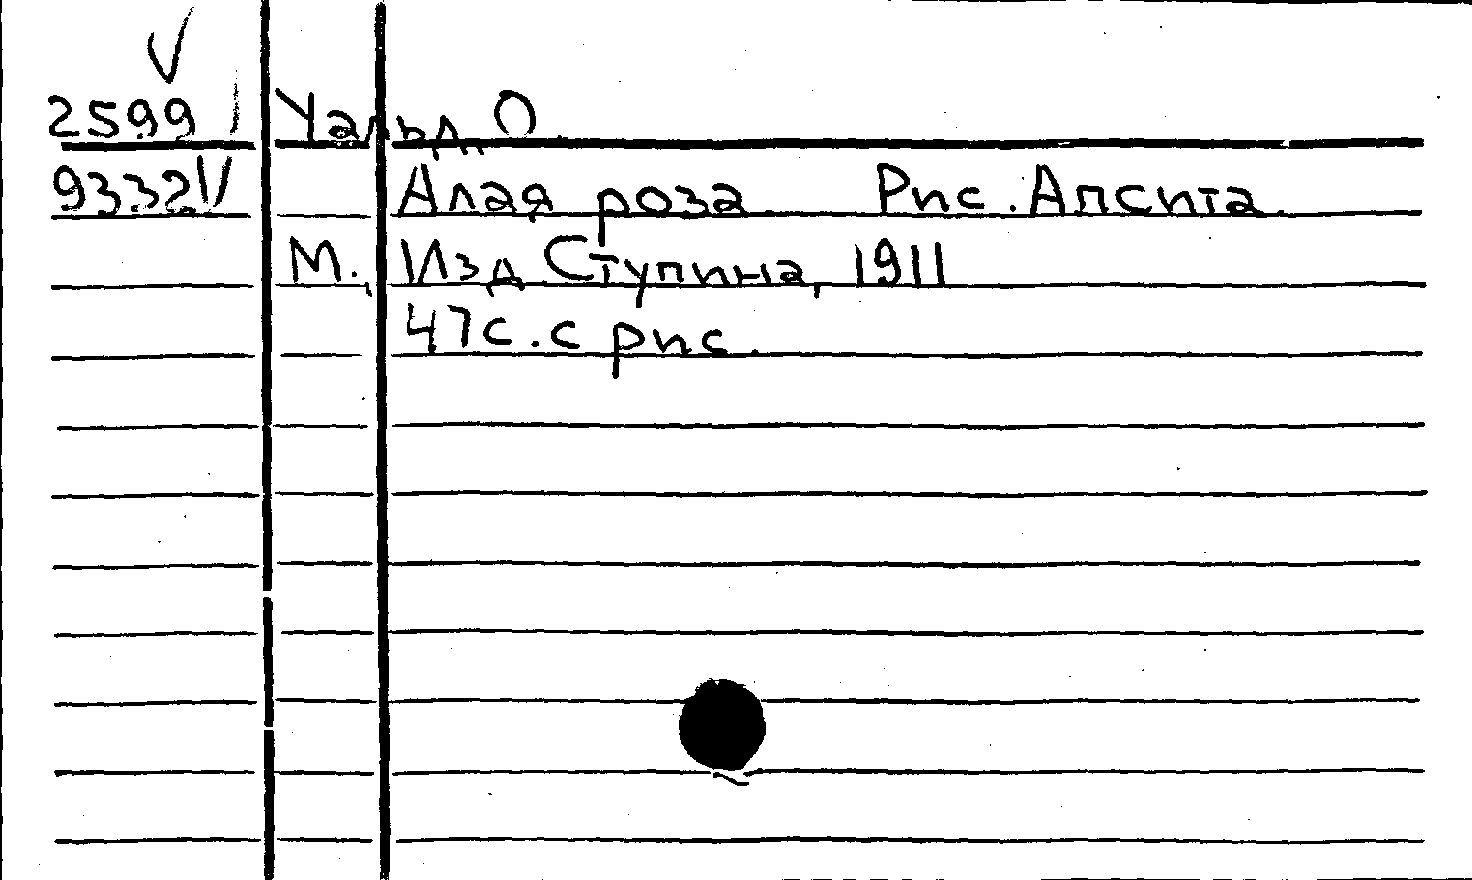 2599 Уальд, О.
9332 Алая роза. Рис. Апсита.
М., Изд. Ступина, 1911
47 с. с рис.